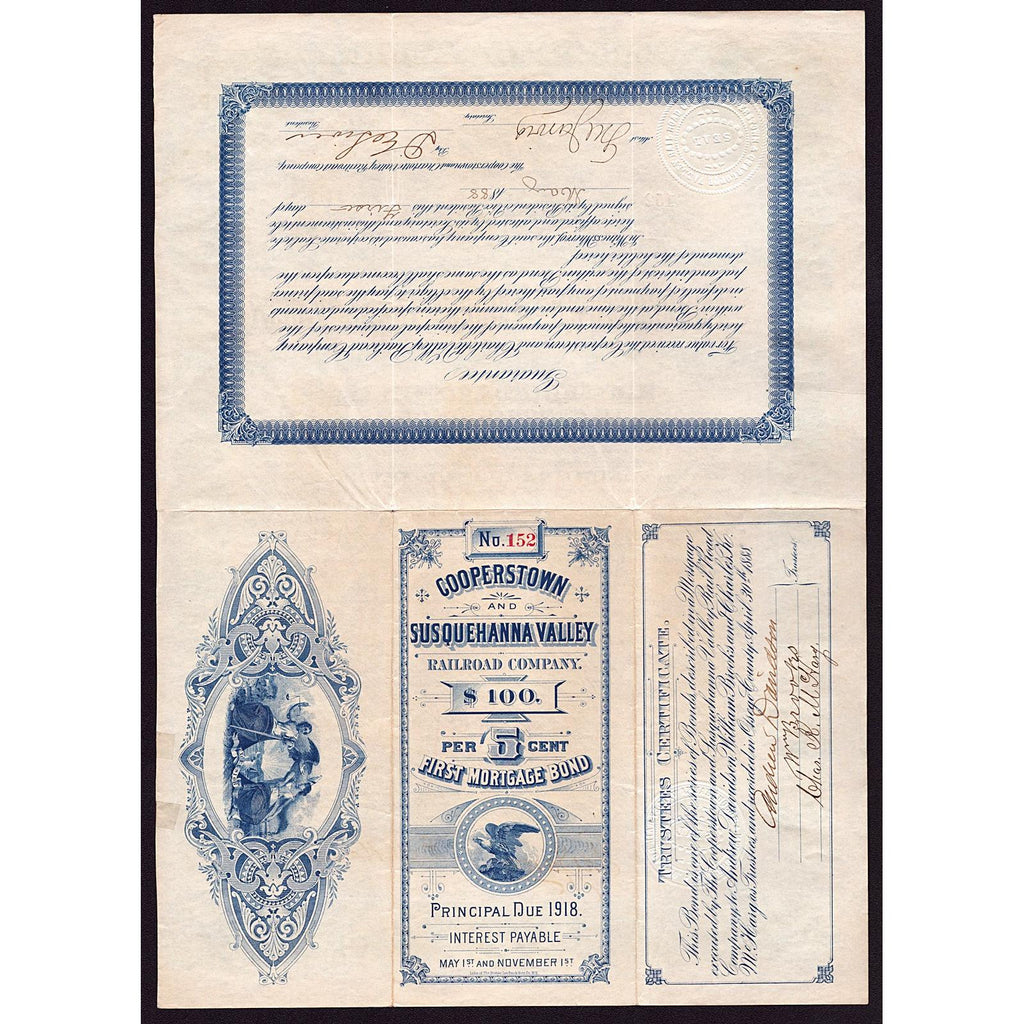 Guarantee
For value received the Cooperstown and Charlotte Valley Railroad Company
hereby guarantees the punctual payment of the principal and interest of the
within Bond at the time and in the manner therein specified and covenants
in default of payment of any part thereof by the obligor to pay the said princi-
pal and interest of the within Bond as the same shall become due upon the
demand of the holder hereof.
In Witness Whereof the said Company has caused its corporate Seal to be
hereto affixed and attested by its Secretary and this instrument to be
signed by its President or Vice President this First day of
May 1888
The Cooperstown and Charlotte Valley Railroad Company,
Attest By
Secretary President
No. 152
COOPERSTOWN
AND
SUSQUEHANNA VALLEY
RAILROAD COMPANY.
$ 100.
PER 5 CENT
FIRST MORTGAGE BOND
PRINCIPAL DUE 1918.
INTEREST PAYABLE
MAY 1ST AND NOVEMBER 1ST
TRUSTEES CERTIFICATE.
This Bond is one of the series of Bonds described in a Mortgage
executed by The Cooperstown and Susquehanna Valley Rail Road
Company to Andrew Davidson, William Brooks and Charles K.
McHarg as Trustees and recorded in Otsego County, April 30th 1888
Andrew Davidson
Wm Brooks
Chas. K. McHarg
Trustees